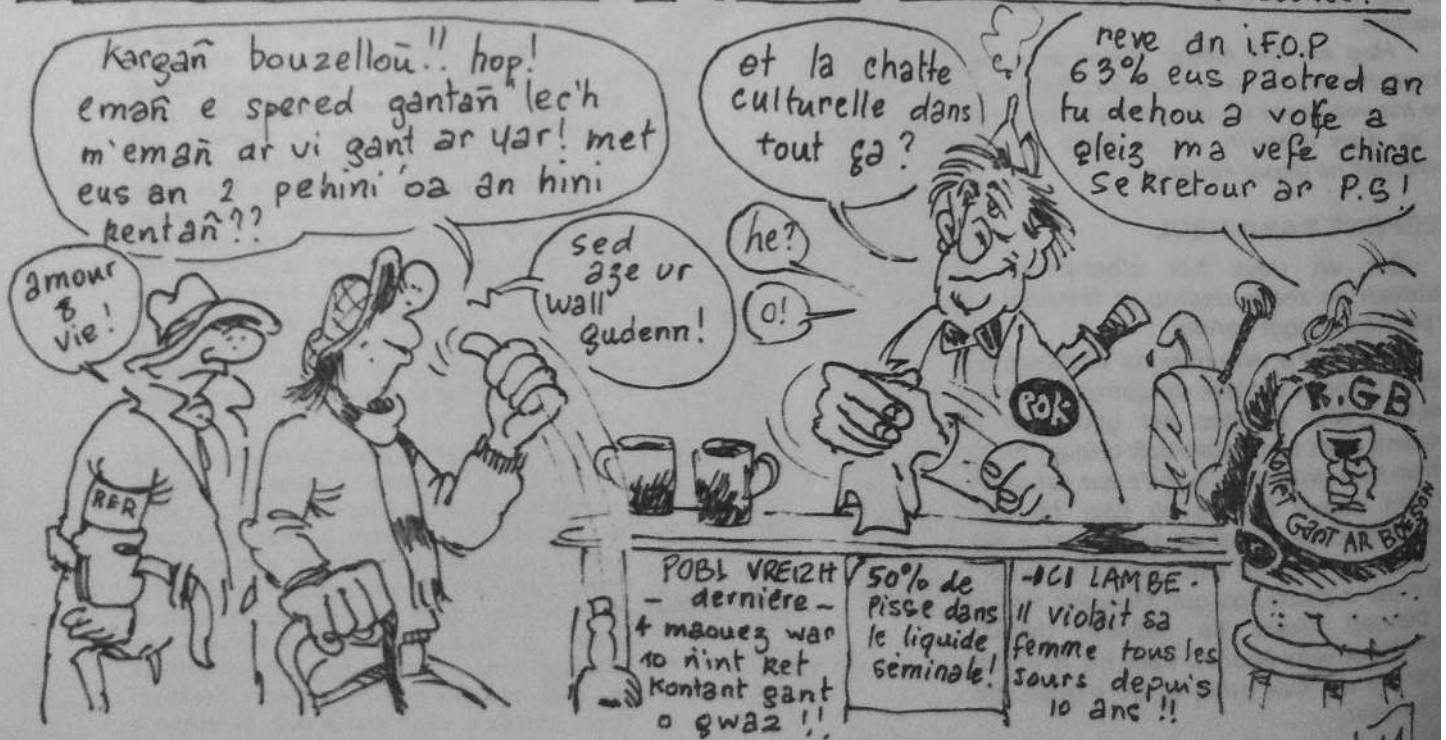 kargañ bouzelloù!! hop!
emañ e spered gantañ lec'h
m'emañ ar vi gant ar yar! met
eus an 2 pehini oa an hini
kentañ??
amour
&
vie!
sed
aze ur
wall
gudenn!
et la chatte
culturelle dans
tout ça?
he?
o!
reve an i.F.O.P
63% eus paotred an
tu dehou a vote a
gleiz ma vefe chirac
sekretour ar P.S!
RER
POK
R.GB
GANT AR BOESON
POBL VREIZH
- dernière -
4 maouez war
10 n'int ket
kontant gant
o gwaz !!
50% de
pisse dans
le liquide
séminale!
-ICI LAMBE-
Il violait sa
femme tous les
jours depuis
10 ans !!